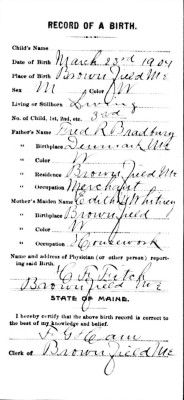 RECORD OF A BIRTH.
Child's Name
Date of Birth March 23rd 1904
Place of Birth Brownfield Me
Sex M Color W
Living or Stillborn Living
No. of Child, 1st, 2nd, etc. 3rd
Father's Name Fred R Bradbury
" Birthplace Denmark Me
" Color W
" Residence Brownfield Me
" Occupation Merchant
Mother's Maiden Name Edith Whitney
" Birthplace Brownfield
" Color W
" Occupation Housework
Name and address of Physician (or other person) reporting
said Birth.
Fitch
Brownfield Me
STATE OF MAINE.
I hereby certify that the above birth record is correct to
the best of my knowledge and belief.
Clerk of Brownfield Me